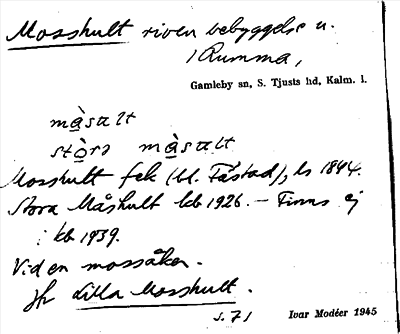 Mosshult riven bebyggelse u.
Rumma,
Gamleby sn, S. Tjusts hd, Kalm. l.
mà̱sult
stò̱rə mà̱sult
Mosshult fek (bl. Fåstad), ls 1844.
Stora Måshult kb 1926. – Finns ej
i kb 1939.
Vid en mossåker.
Jfr Lilla Mosshult.
s. 71 Ivar Modéer 1945